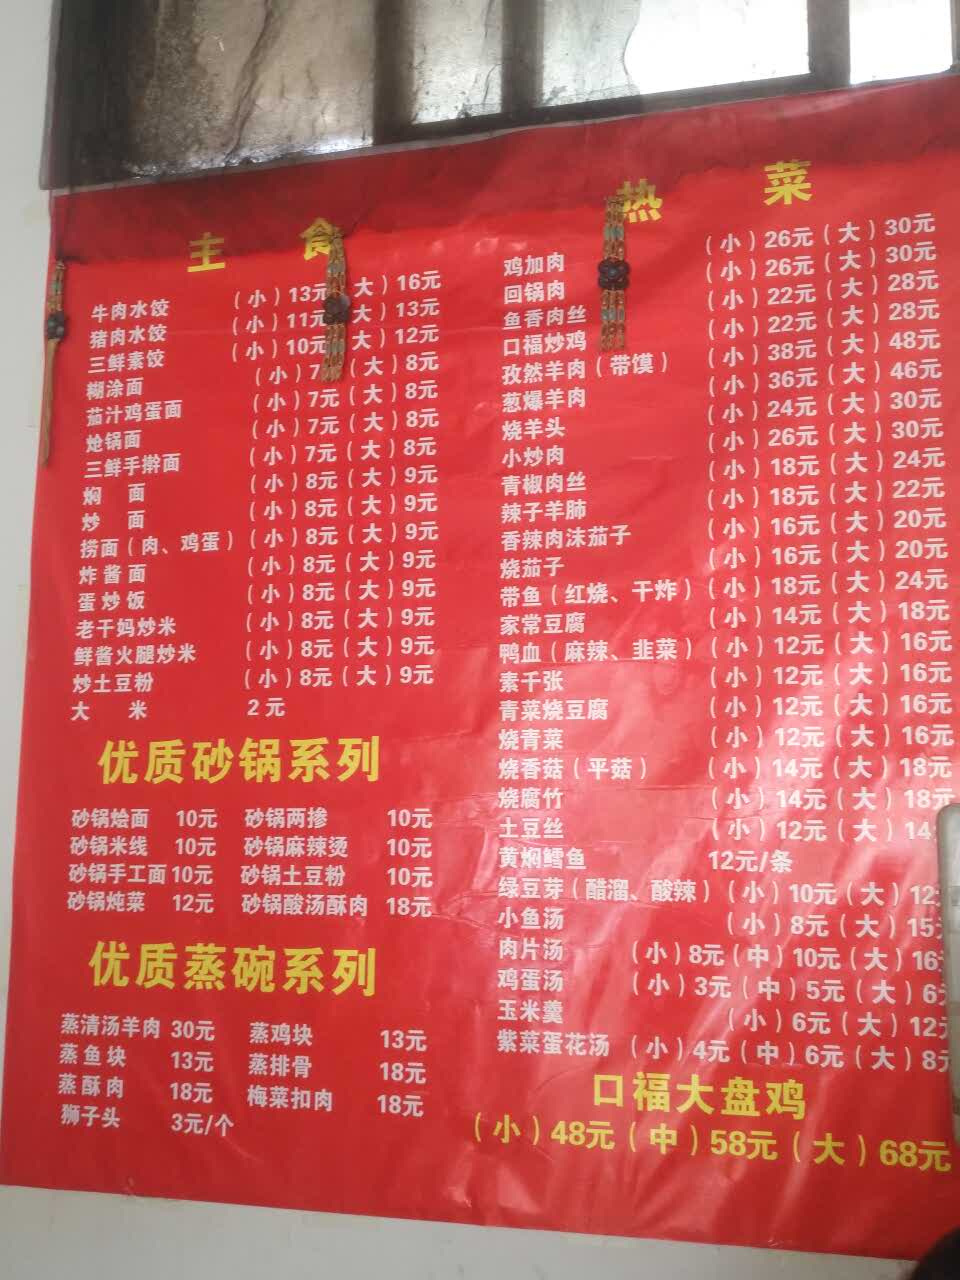 主食
牛肉水饺 (小)13元 大)16元
猪肉水饺 (小)11元 大)13元
三鲜素饺 (小)10元 大)12元
糊涂面 (小)7 (大)8元
茄汁鸡蛋面 (小)7元(大)8元
炝锅面 (小)7元(大)8元
三鲜手擀面 (小)7元(大)8元
焖面 (小)8元(大)9元
炒面 (小)8元(大)9元
捞面(肉、鸡蛋) (小)8元(大)9元
炸酱面 (小)8元(大)9元
蛋炒饭 (小)8元(大)9元
老干妈炒米 (小)8元(大)9元
鲜酱火腿炒米 (小)8元(大)9元
炒土豆粉 (小)8元(大)9元
大米 2元
优质砂锅系列
砂锅烩面 10元 砂锅两掺 10元
砂锅米线 10元 砂锅麻辣烫 10元
砂锅手工面 10元 砂锅土豆粉 10元
砂锅炖菜 12元 砂锅酸汤酥肉 18元
优质蒸碗系列
蒸清汤羊肉 30元 蒸鸡块 13元
蒸鱼块 13元 蒸排骨 18元
蒸酥肉 18元 梅菜扣肉 18元
狮子头 3元/个
热菜
鸡加肉 (小)26元(大)30元
回锅肉 (小)26元(大)30元
鱼香肉丝 (小)22元(大)28元
口福炒鸡 (小)22元(大)28元
孜然羊肉(带馍) (小)38元(大)48元
葱爆羊肉 (小)36元(大)46元
烧羊头 (小)24元(大)30元
小炒肉 (小)26元(大)30元
青椒肉丝 (小)18元(大)24元
辣子羊肺 (小)18元(大)22元
香辣肉沫茄子 (小)16元(大)20元
烧茄子 (小)16元(大)20元
带鱼(红烧、干炸) (小)18元(大)24元
家常豆腐 (小)14元(大)18元
鸭血(麻辣、韭菜) (小)12元(大)16元
素千张 (小)12元(大)16元
青菜烧豆腐 (小)12元(大)16元
烧青菜 (小)12元(大)16元
烧香菇(平菇) (小)14元(大)18元
烧腐竹 (小)14元(大)18元
土豆丝 (小)12元(大)14
黄焖鳕鱼 12元/条
绿豆芽(醋溜、酸辣) (小)10元(大)12
小鱼汤 (小)8元(大)15
肉片汤 (小)8元(中)10元(大)16
鸡蛋汤 (小)3元(中)5元(大)6
玉米羹 (小)6元(大)12
紫菜蛋花汤 (小)4元(中)6元(大)8
口福大盘鸡
(小)48元(中)58元(大)68元